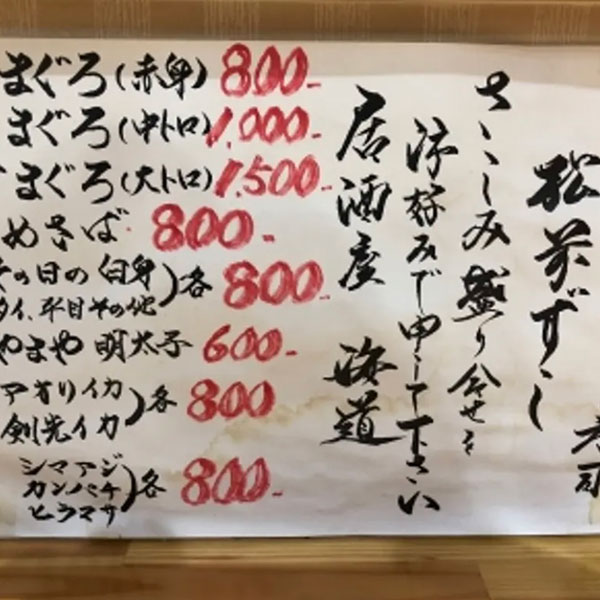 松前ずし
さしみ盛り合せを
御好みで申して下さい
居酒屋 海道
まぐろ(赤身) 800-
まぐろ(中トロ) 1,000-
まぐろ(大トロ) 1,500-
めさば 800-
の日の白身
タイ、平目その他)各 800-
やまや 明太子 600-
アオリイカ
剣先イカ)各 800
シマアジ
カンパチ
ヒラマサ)各 800-